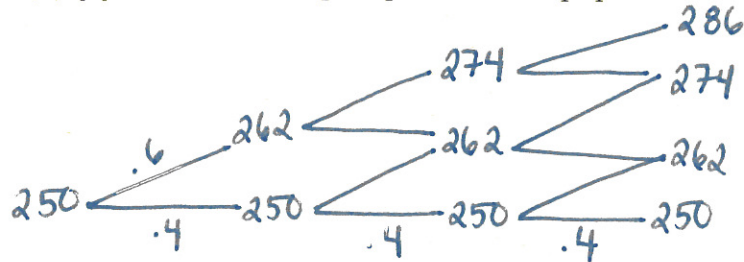 286
274
274
.6
262
262
262
250
250
250
250
.4
.4
.4